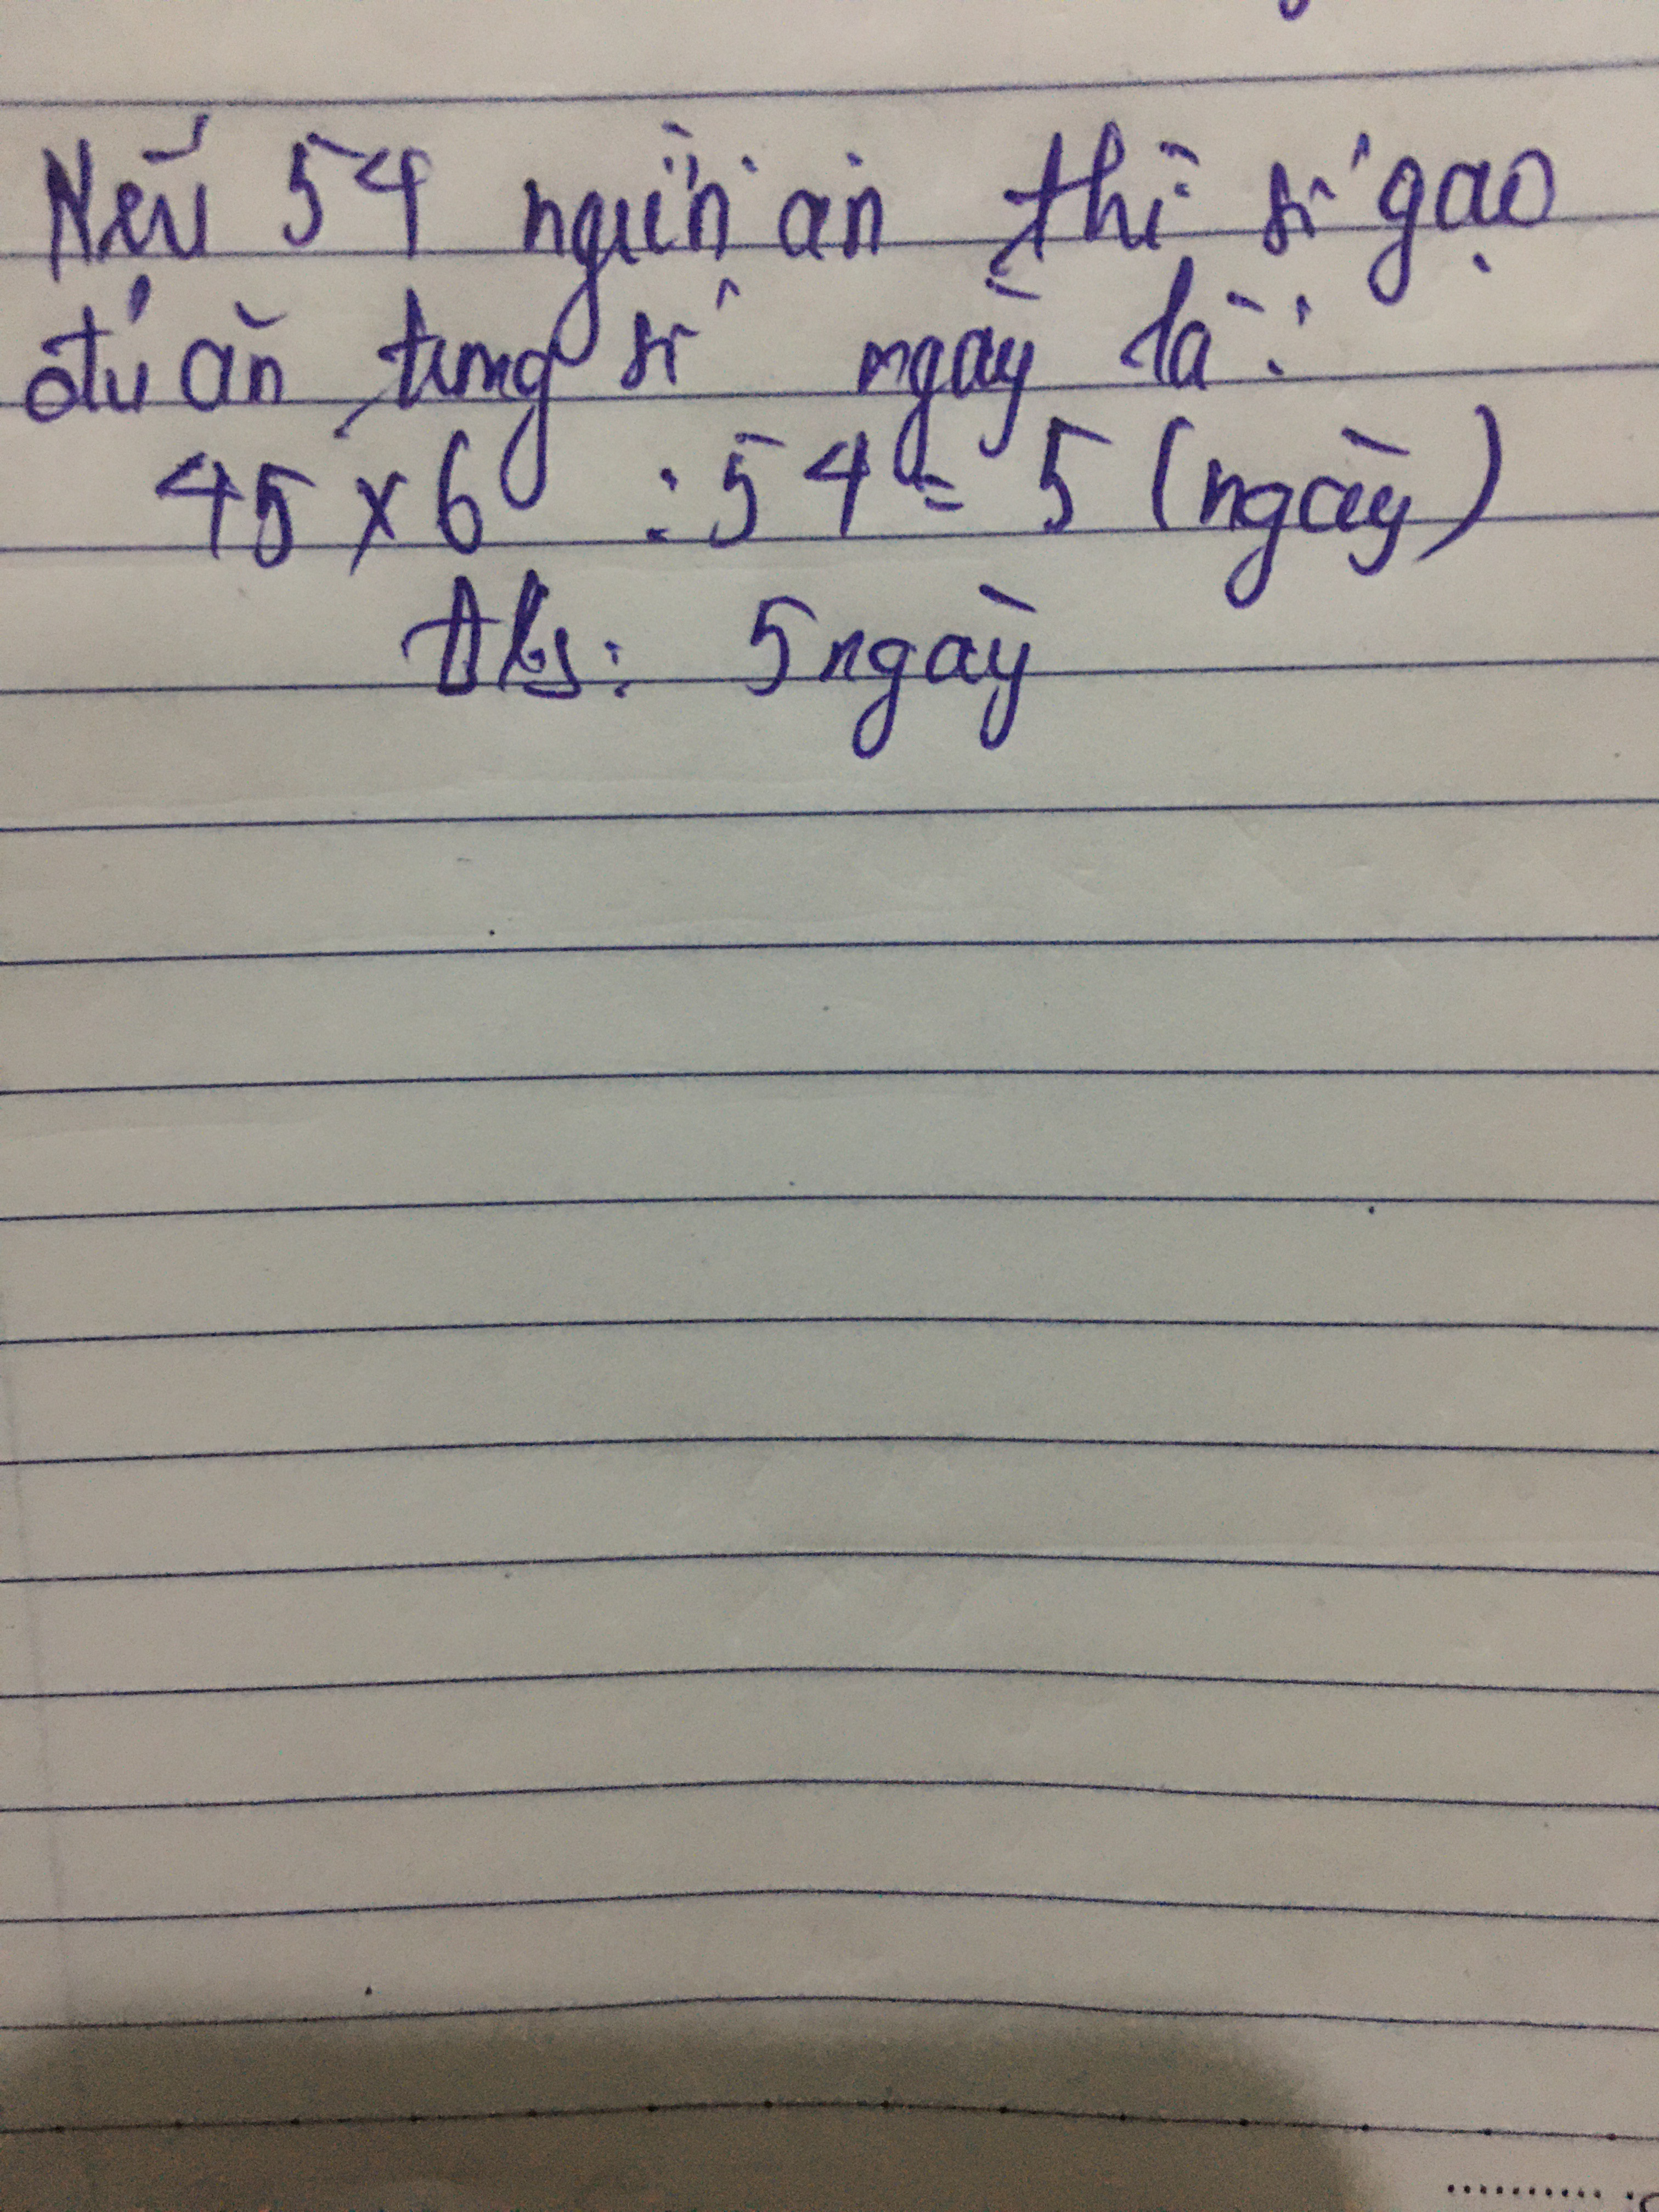 Nếu 54 người ăn thì số gạo
đủ ăn trong số ngày là:
45 x 6 : 54 = 5 (ngày)
Đ/s: 5 ngày